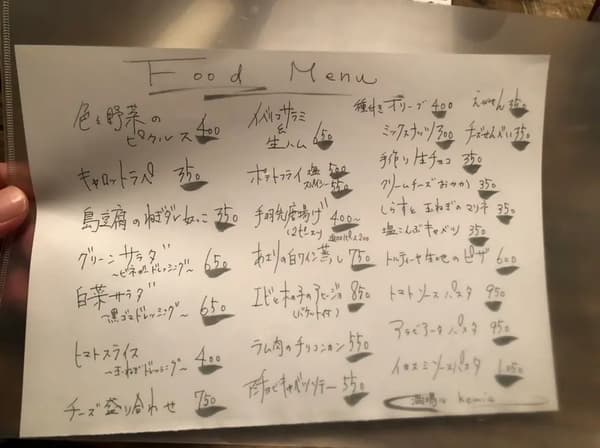 Food Menu
色々野菜の
ピクルス 400
キャロットラペ 350
島豆腐のねぎダレ奴っこ 350
グリーンサラダ 650
〜ビネガードレッシング〜
白菜サラダ 650
〜黒ゴマドレッシング〜
トマトスライス 400
〜玉ねぎドレッシング〜
チーズ盛り合わせ 750
イベリコサラミ
&
生ハム 650
ポテトフライ 塩 500
550
手羽先唐揚げ 400〜
(2ピース)
あさりの白ワイン蒸し 750
エビときの子のアヒージョ 850
(バケット付)
ラム肉のチリコンカン 550
アンチョビキャベツソテー 550
種付きオリーブ 400
えびせん 350
ミックスナッツ 300
チーズせんべい 350
手作り生チョコ 350
クリームチーズおかか 350
しらすと玉ねぎのマリネ 350
塩こんぶキャベツ 350
トルティーヤ生地のピザ 600
トマトソースパスタ 950
アラビアータパスタ 950
イカスミソースパスタ 1,050
酒場 kemia